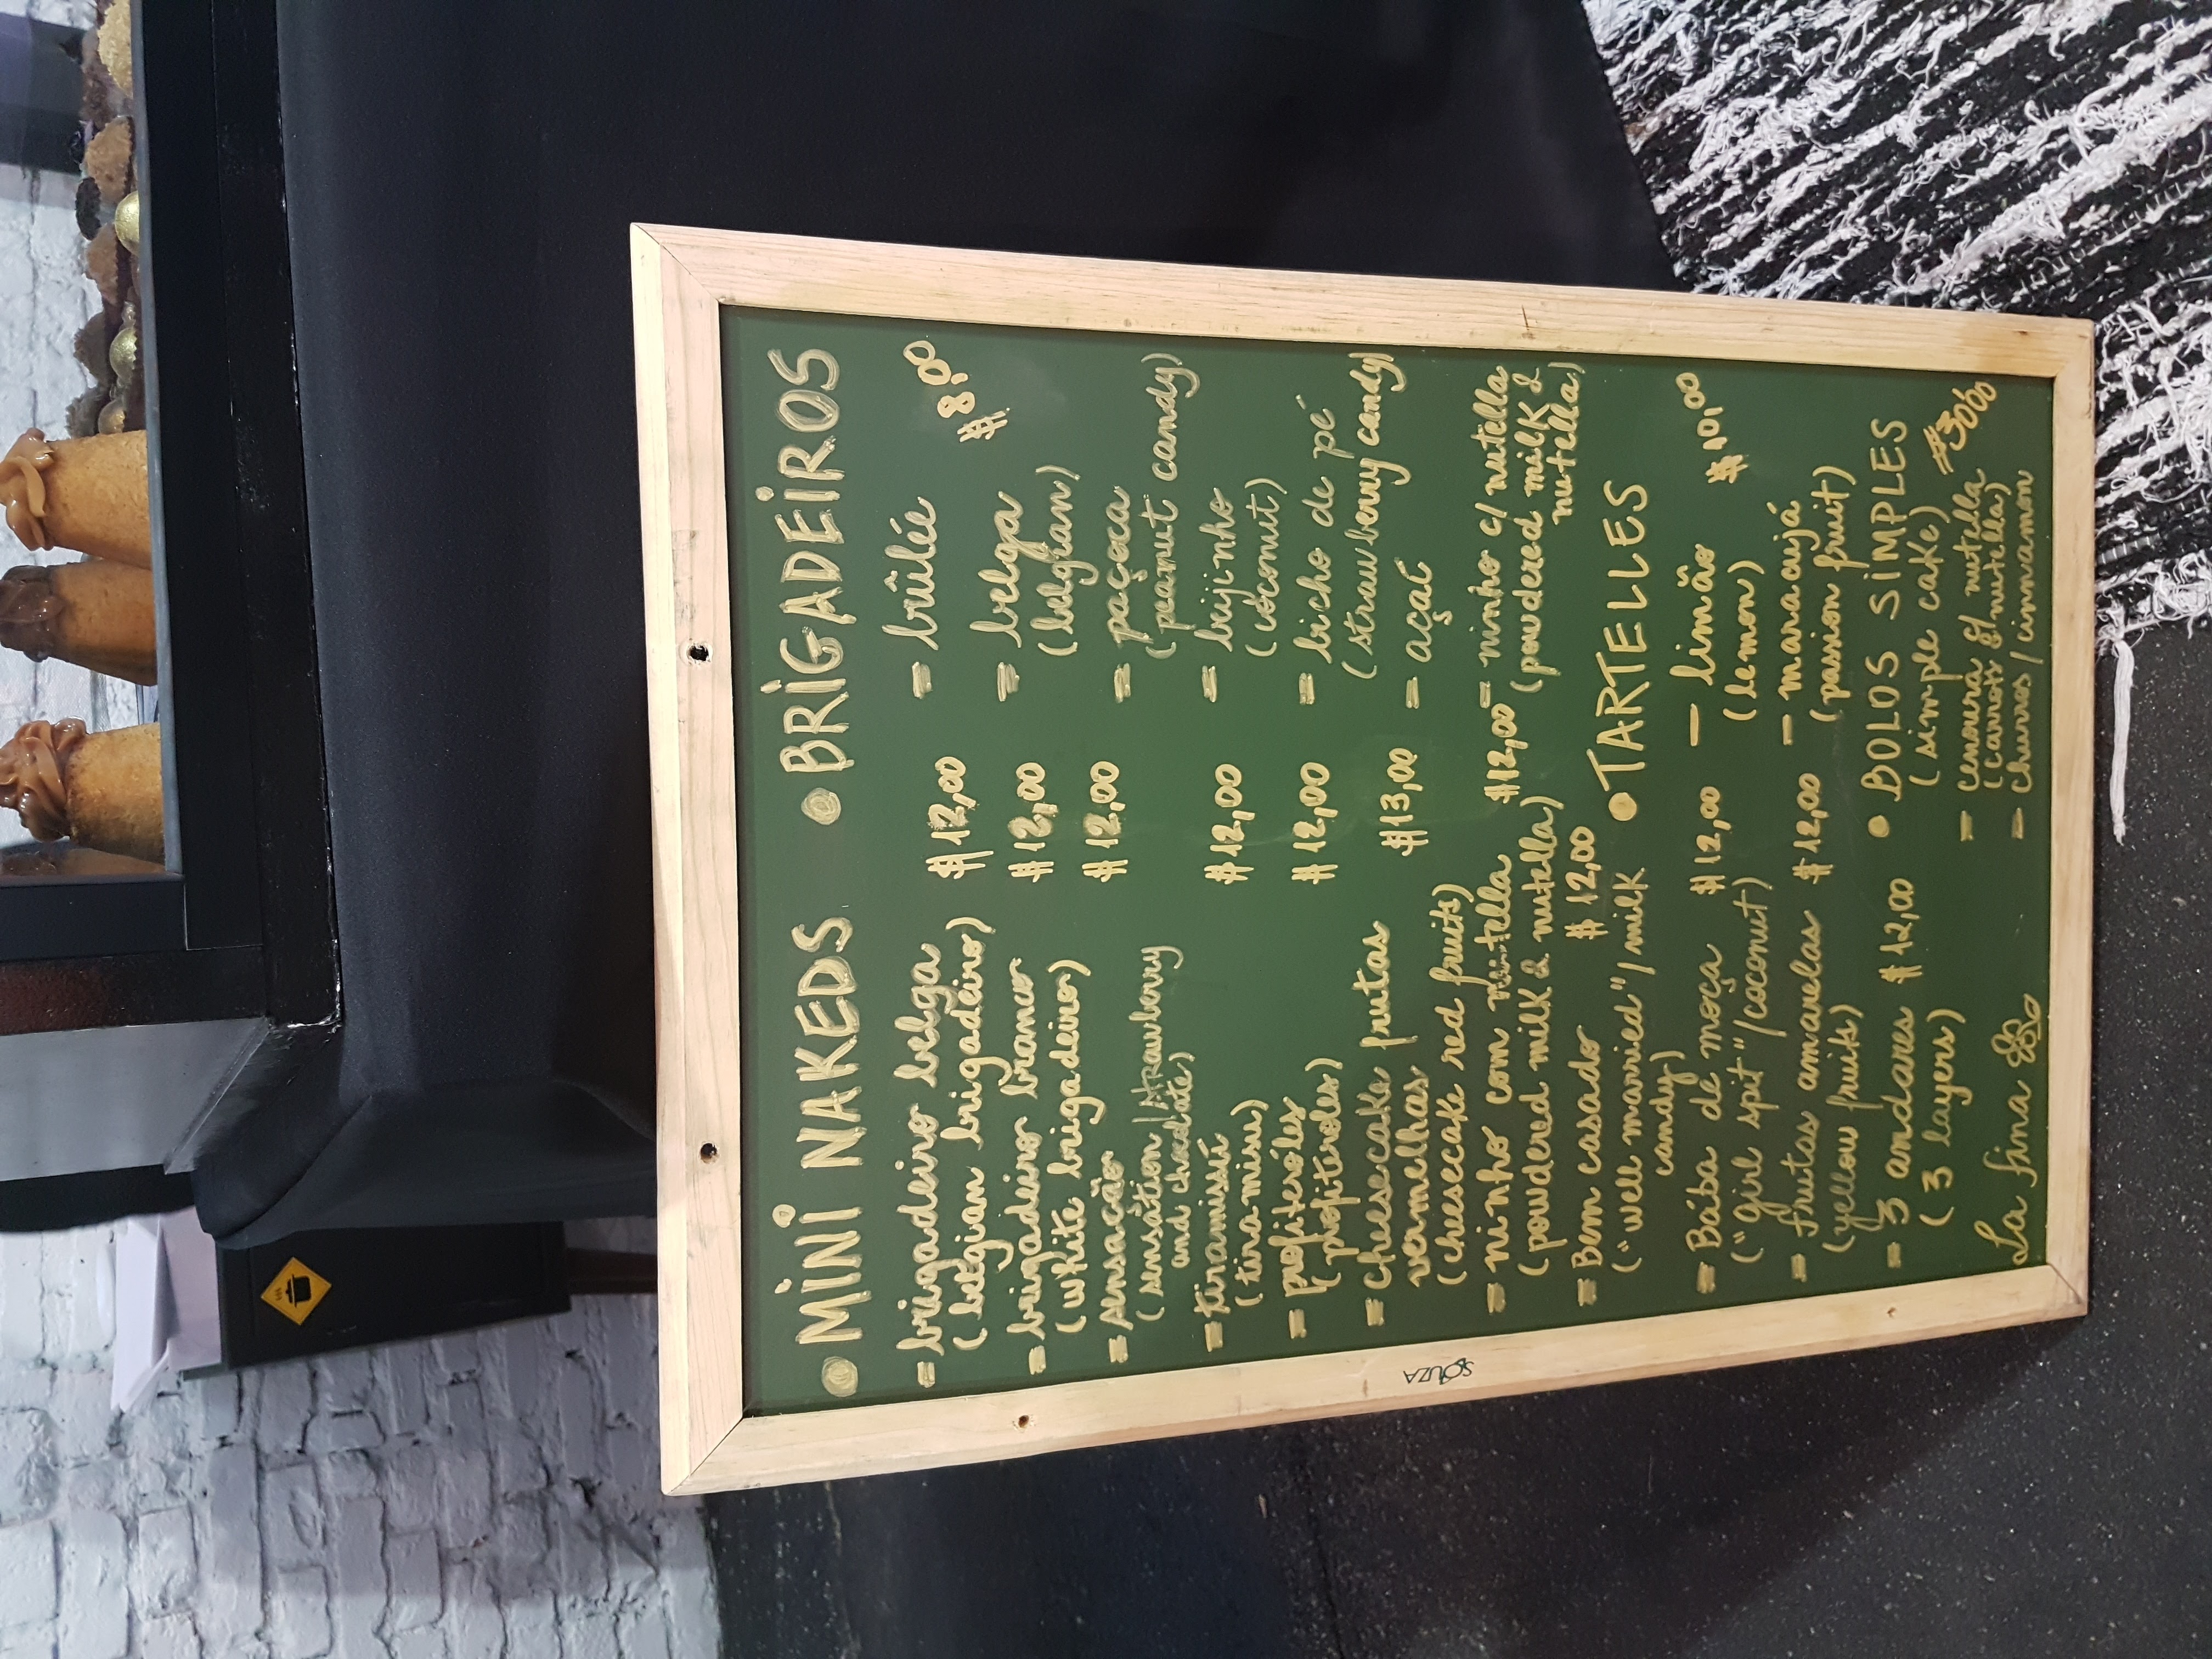 • MINI NAKEDS
= brigadeiro belga $12,00
(belgian brigadeiro)
= brigadeiro branco $12,00
(white brigadeiro)
= sensação $12,00
(sensation/strawberry
and chocolate)
= tiramissú $12,00
(tiramisu)
= profiteróles $12,00
(profitiroles)
= cheesecake frutas
vermelhas $13,00
(cheesecake red fruits)
= ninho com nutella $12,00
(powdered milk & nutella)
= Bem casado $12,00
("well married"/milk
candy)
= Bába de moça $12,00
("girl spit"/coconut)
= frutas amarelas $12,00
(yellow fruits)
= 3 andares $12,00
(3 layers)
La fina
• BRIGADEIROS
= brûlée $8,00
= belga
(belgian)
= paçoca
(peanut candy)
= beijinho
(coconut)
= bicho de pé
(strawberry candy)
= açaí
= ninho c/ nutella
(powdered milk &
nutella)
• TARTELLES
- limão $10,00
(lemon)
- maracujá
(passion fruit)
• BOLOS SIMPLES
(simple cake)
= cenoura c/ nutella
(carrots & nutella)
= churros/cinnamon
SOUZA